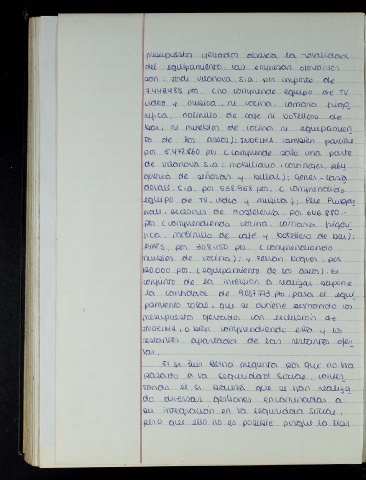 presupuestos ofertados abarca la totalidad
del equipamiento. Las empresas ofertantes
son: Jordi Vilanova S.A. por importe de
7.448.485 pts. (no comprende equipo de TV
video y musica, ni cocina, camara frigo-
rifica, molinillo de cafe ni botellero de
bar, ni muebles de cocina ni equipamien-
to de los aseos);                también parcial
por 5.472.860 pts (comprende solo una parte
de Vilanova S.A.: mobiliario, cortinajes,
             de señoras y billar);
       S.A., por 538.958 pts, (comprendiendo
equipo de TV, video y musica); Pere Puigag
     , accesorios de Hosteleria, por 646.880.-
pts (comprendiendo cocina, camara frigori-
fica, molinillo de café y botellero de bar);
       por 308.450 pts. (comprendiendo
muebles de cocina); y Ferran            por
120.000 pts. (equipamiento de los aseos). El
conjunto de la inversion a realizar supone
la cantidad de 9.057.773 pts. para el equi-
pamiento total, que se obtiene sumando los
presupuestos ofertados con exclusión de
          , o bien comprendiendo esta y los
restantes apartados de las restantes ofer-
tas.
El Sr. Luis            pregunta por que no ha
pasado a la Seguridad Social, contes-
tando el Sr.            que se han realiza-
do diversas gestiones encaminadas a
su integracion en la Seguridad Social,
pero que ello no es posible porque la